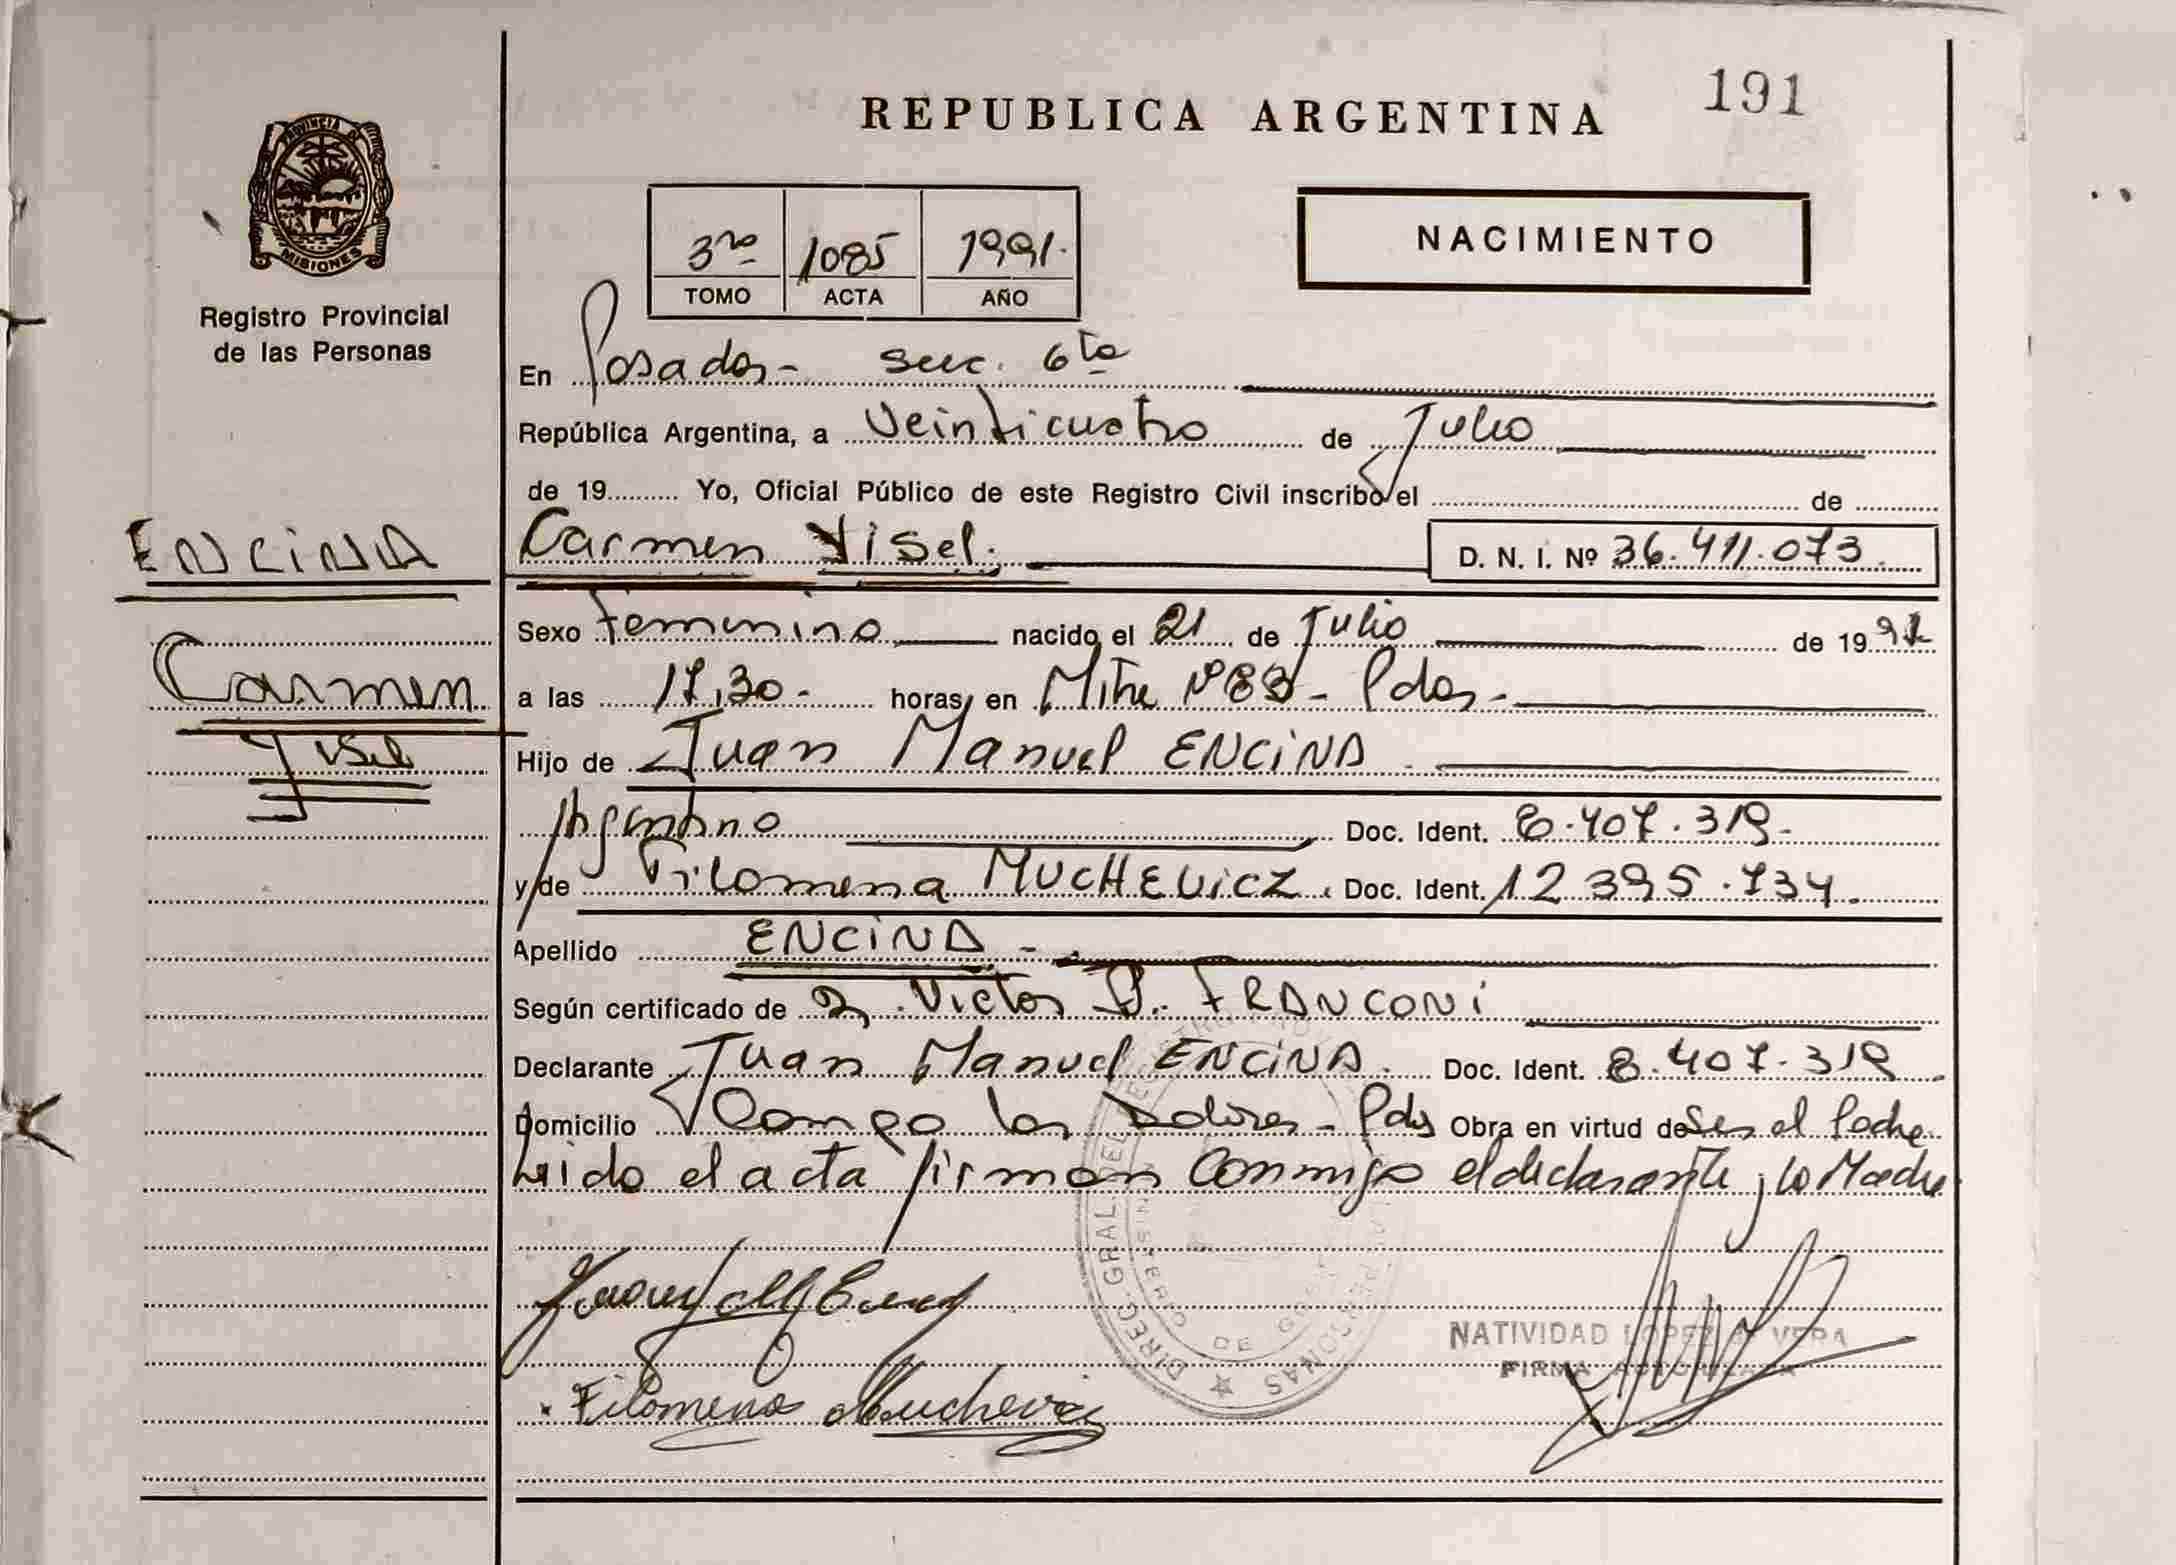 191
REPUBLICA ARGENTINA
PROVINCIA DE
MISIONES
Registro Provincial
de las Personas
3ro 1085 1991.
TOMO ACTA AÑO
NACIMIENTO
En Posadas - secc. 6ta
República Argentina, a Veinticuatro de Julio
de 19 Yo, Oficial Público de este Registro Civil inscribo el de
ENCINA
Carmen Yisel. D. N. I. Nº 36.411.073
Sexo femenino nacido el 21 de Julio de 1991
Carmen
Yisel
a las 17,30 - horas, en Mitre Nº 83 - Pdas -
Hijo de Juan Manuel ENCINA
Argentino Doc. Ident. 8.407.319.
y de Filomena MUCHEVICZ. Doc. Ident. 12395.734.
Apellido ENCINA -
Según certificado de Victor FRANCONI
Declarante Juan Manuel ENCINA. Doc. Ident. 8.407.319
Domicilio Campo los Dolores - Pdas Obra en virtud de Ser el Padre
Leida el acta firman conmigo el declarante y la Madre
DIREC. GRAL. DEL REGISTRO PERSONAS
DE
NATIVIDAD LOPEZ de VERA
FIRMA AUTORIZADA
Filomena Muchevicz